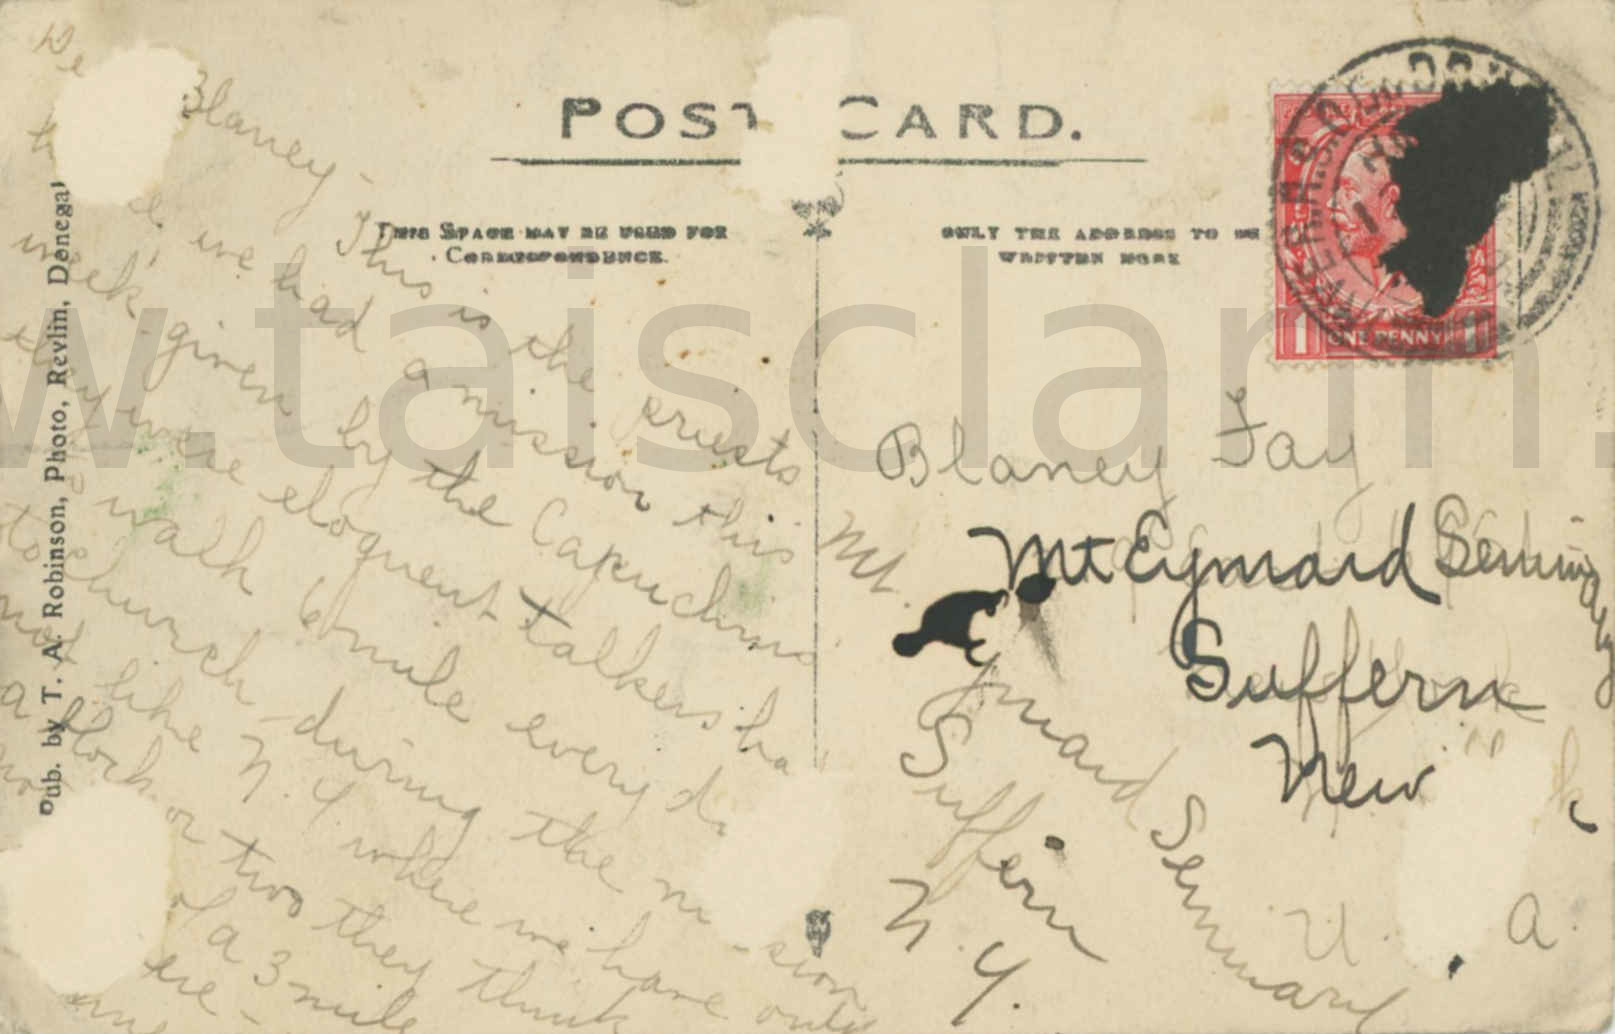 POST CARD.
THIS SPACE MAY BE USED FOR
CORRESPONDENCE.
ONLY THE ADDRESS TO BE
WRITTEN HERE
Pub. by T. A. Robinson, Photo, Revlin, Donegal
Blaney -
This is the priests
we had a mission this
week given by the Capuchins
they were eloquent talkers
walk 6 mile every
to church during the
not like N.Y where we have only
a block or two they think
of a 3 mile
1 ONE PENNY 1
Blaney Fay
Mt Eymard Seminary
Suffern
New
U. A.
Mt.
Eymard Seminary
Suffern
N.Y.
w.taisclann.